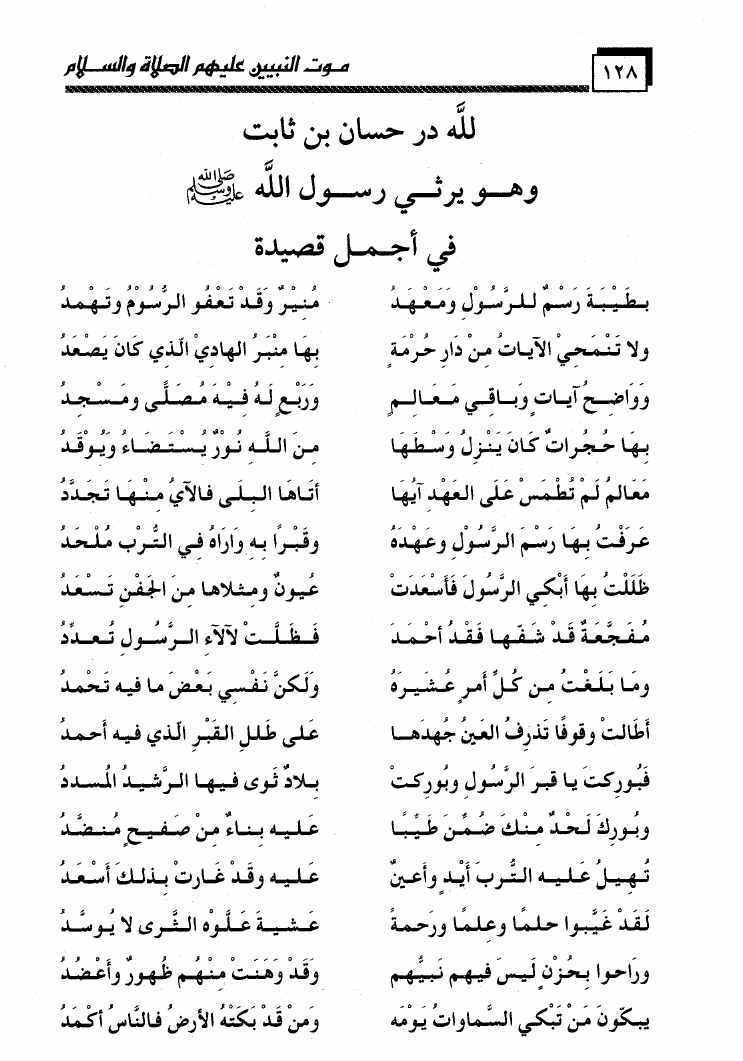 ١٢٨
موت النبيين عليهم الصلاة والسلام
للَّه در حسان بن ثابت
وهو يرثي رسول اللَّه ﷺ
في أجمل قصيدة
بطَيْبَةَ رَسْمٌ للرَّسُولِ ومَعْهَدُ مُنيرٌ وَقَدْ تَعْفُو الرُّسُوْمُ وتَهْمدُ
ولا تَنْمَحيْ الآيَاتُ مِنْ دَارِ حُرْمَةٍ بِهَا مِنْبَرُ الهاديْ الَّذي كَانَ يَصْعَدُ
وَوَاضِحُ آيَاتٍ وَبَاقي مَعَالِمٍ وَرَبْعٍ لَهُ فيْهَ مُصَلَّى ومَسْجدُ
بِهَا حُجُراتٌ كَانَ يَنْزِلُ وَسْطَهَا مِنَ اللَّهِ نُورٌ يُسْتَضَاءُ وَيُوْقَدُ
مَعَالمُ لَمْ تُطْمَسْ عَلَى العَهْدِ آيُهَا أتَاهَا البلَى فالآيُ منْهَا تَجَدَّدُ
عَرَفْتُ بِهَا رَسْمَ الرَّسُولِ وعَهْدَهُ وقَبْرًا بِهِ وَارَاهُ في التُّرْبِ مُلْحَدُ
ظَلَلْتُ بِهَا أَبْكي الرَّسُولَ فَأَسْعَدَتْ عُيونٌ ومثلاها منَ الجَفْنِ تَسْعَدُ
مُفَجَّعَةٌ قَدْ شَفَّها فَقْدُ أحْمَدَ فَظَلَّتْ لآلآءِ الرَّسُولِ تُعدِّدُ
ومَا بَلَغْتُ من كُلِّ أمرٍ عُشَيرَهُ وَلَكنَّ نَفْسي بَعْضَ ما فيه تَحْمدُ
أطَالتْ وقوفًا تَذرفُ العَينُ جُهدَها عَلى طَللِ القَبْرِ الَّذي فيه أحمدُ
فَبُوركتَ يا قبرَ الرَّسُولِ وبُوركتْ بلادٌ ثَوى فيها الرَّشيدُ المُسددُ
وبُورِكَ لَحْدٌ منكَ ضُمِّنَ طَيِّبًا عليه بناءٌ منْ صَفيحٍ مُنضَّدُ
تُهيلُ عَليه التُّربَ أيْدٍ وأعينٌ عليه وقَدْ غَارتْ بذلكَ أسْعَدُ
لَقدْ غَيَّبوا حلمًا وعلمًا ورَحمةً عَشيةَ عَلَّوْه الثَّرى لا يُوسَّدُ
وراحوا بحُزْنٍ ليسَ فيهم نَبيُّهم وَقَدْ وَهَنَتْ منْهم ظُهورٌ وأعْضُدُ
يبكّونَ مَنْ تَبْكي السَّماواتُ يَوْمَه ومَنْ قَدْ بَكتْهُ الأرضُ فالنَّاسُ أكْمَدُ